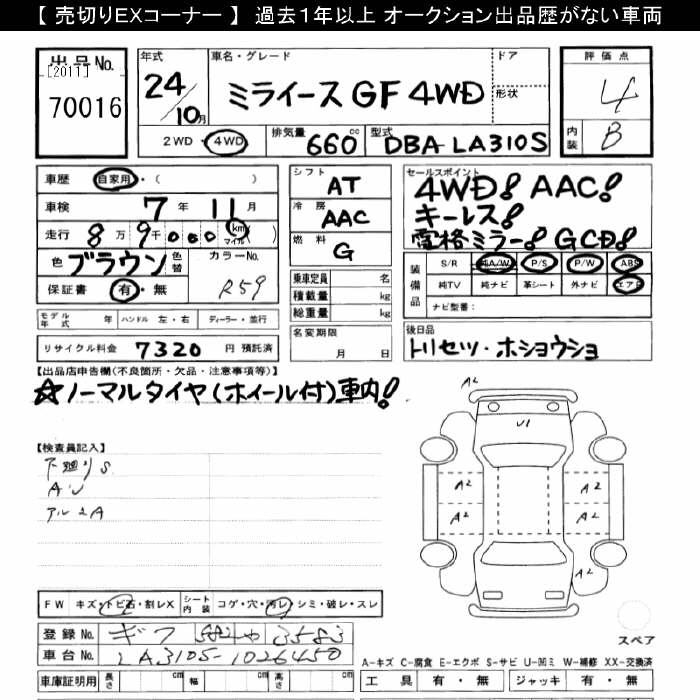 【 売切りEXコーナー 】 過去1年以上 オークション出品歴がない車両
出品No.
[2011]
70016
年式
24/10月
車名・グレード
ミライース GF 4WD
ドア
形状
評価点
4
内装 B
2WD・4WD
排気量 660cc
型式 DBA-LA310S
車歴 自家用・( )
車検 7年 11月
走行 8万9千000 km マイル ( )
色 ブラウン 色替
カラーNo. R59
保証書 有・無
モデル年式 年 ハンドル 左・右 ディーラー・並行
リサイクル料金 7320 円 預託済
シフト AT
冷房 AAC
燃料 G
乗車定員 名
積載量 kg
総重量 kg
名変期限
月 日
セールスポイント
4WD! AAC!
キーレス!
電格ミラー! GCD!
装備品
S/R A/W P/S P/W ABS
純TV 純ナビ 革シート 外ナビ エアB
ナビ型番:
後日品
トリセツ・ホショウショ
【出品店申告欄(不良箇所・欠品・注意事項等)】
☆ノーマルタイヤ(ホイール付)車内!
【検査員記入】
下廻りS
AU
アルミA
A2
U1
A2 A2
A2 A2
A2
スペア
FW キズ・トビ石・割レX シート内装 コゲ・穴・汚レ・シミ・破レ・スレ
登録No. ギフ 3583
車台No. LA310S-1026450
車庫証明用 長さ cm 幅 cm 高さ cm
A-キズ C-腐食 E-エクボ S-サビ U-凹ミ W-補修 XX-交換済
工具 有・無 ジャッキ 有・無